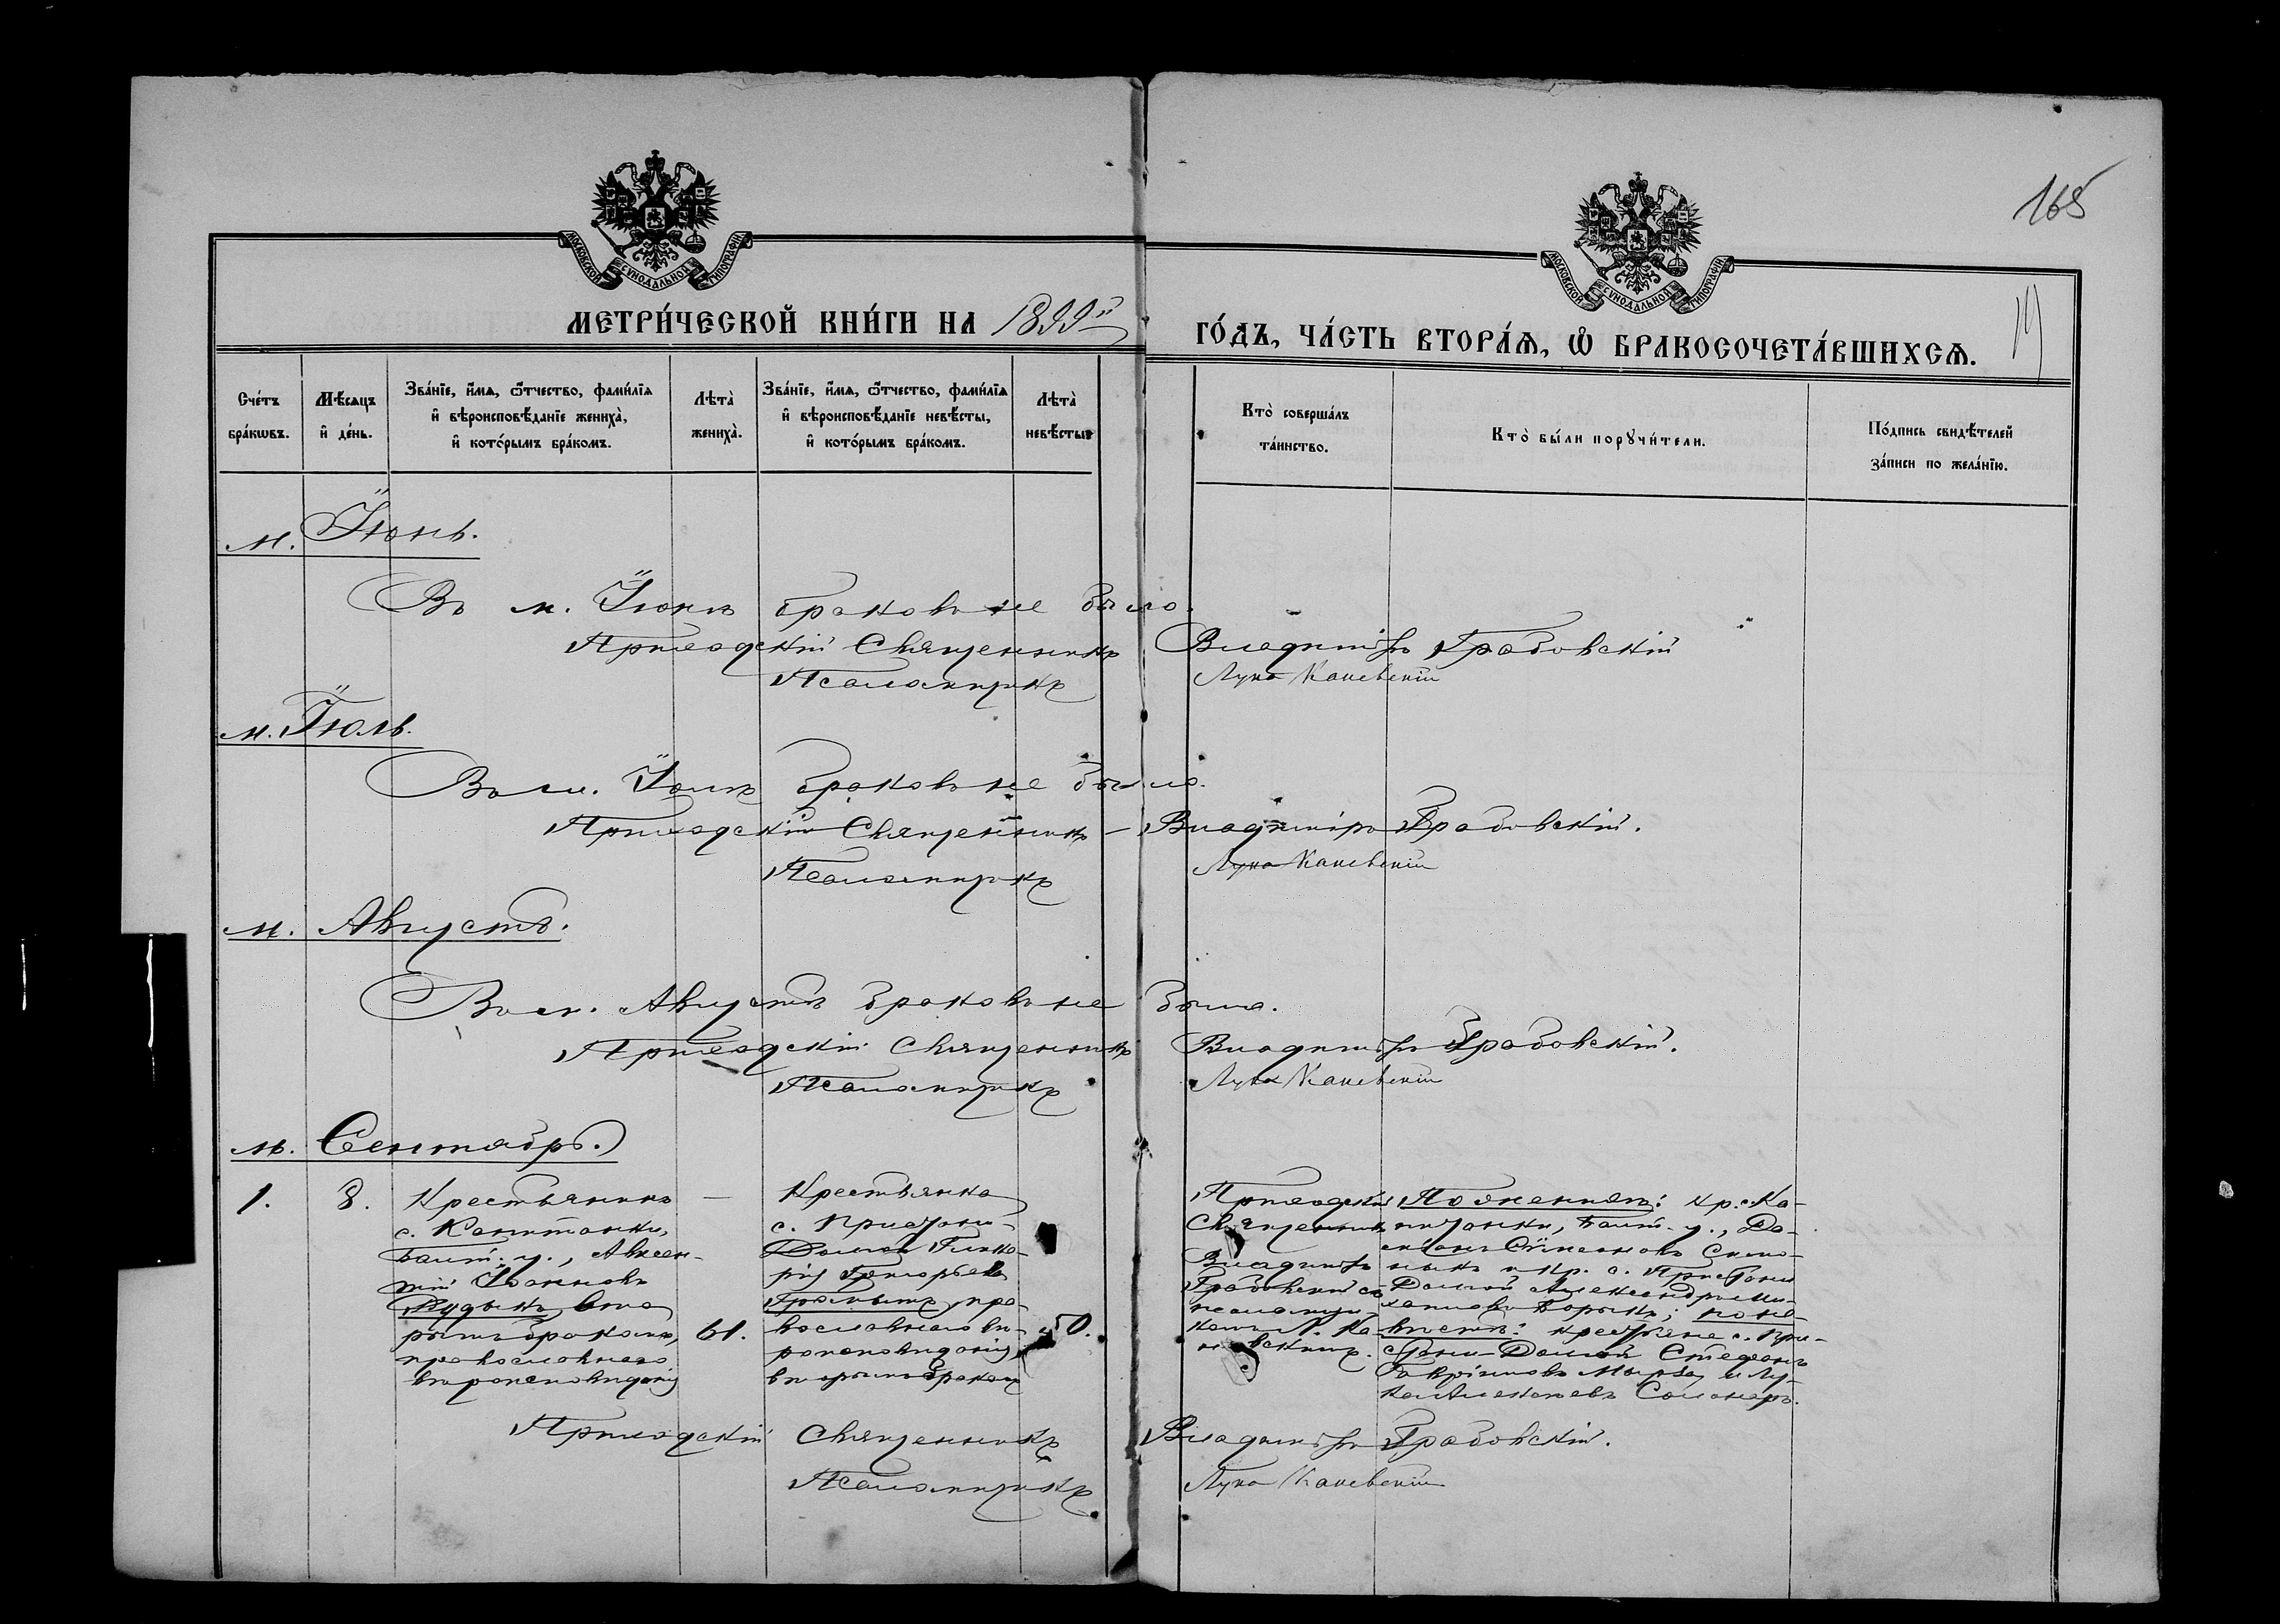 165
МОСКОВСКОЙ СУНОДАЛЬНОЙ ТИПОГРАФІИ
МОСКОВСКОЙ СУНОДАЛЬНОЙ ТИПОГРАФІИ
МЕТРИ́ЧЕСКОЙ КНИ́ГИ НА 1899й
ГО́ДЪ, ЧА́СТЬ ВТОРА́Ѧ, Ѽ БРАКОСОЧЕТА́ВШИХСѦ.
Сче́тъ бра́кѡвъ.
Мѣ́сяцъ и҆ де́нь.
Зва́нїе, и҆́мѧ, ѻ҆́тчество, фами́лїѧ
и҆ вѣроисповѣ́данїе жениха̀,
и҆ кото́рымъ бра́комъ.
Лѣта̀ жениха̀.
Зва́нїе, и҆́мѧ, ѻ҆́тчество, фами́лїѧ
и҆ вѣроисповѣ́данїе невѣ́сты,
и҆ кото́рымъ бра́комъ.
Лѣта̀ невѣ́сты.
Кто̀ соверша́лъ та́инство.
Кто̀ бы́ли порꙋчи́тели.
По́дпись свидѣ́телей за́писи по жела́нїю.
м. Іюнь.
Въ м. Іюнѣ браковъ не было.
Приходскій Священникъ Владиміръ Грабовскій
Псаломщикъ Лука Каневскій
м. Іюль.
Въ м. Іюлѣ браковъ не было.
Приходскій Священникъ – Владиміръ Грабовскій.
Псаломщикъ Лука Каневскій
м. Августъ.
Въ м. Августѣ браковъ не было.
Приходскій Священникъ Владиміръ Грабовскій.
Псаломщикъ Лука Каневскій
м. Сентябрь.
1.
8.
Крестьянинъ
с. Капитанки,
Балт. у., Авксен-
тій Іоанновъ
Вто-
рымъ бракомъ,
православнаго
вѣроисповѣданія
61.
Крестьянка
с. Пристани-
Глике-
рія Григорьева
пра-
вославнаго вѣ-
роисповѣданія,
вторымъ бракомъ
50.
Приходскій
Священникъ
Владиміръ
Грабовскій съ
псаломщи-
комъ Л. Ка-
невскимъ.
По женихѣ: кр. с. Ка-
питанки, Балт. у., Да-
и кр. с. Пристани
Александръ Ми-
по не-
вѣстѣ: крестьяне с. При-
стани Стефанъ
Гавріиловъ и Лу-
ка
Приходскій Священникъ Владиміръ Грабовскій.
Псаломщикъ Лука Каневскій